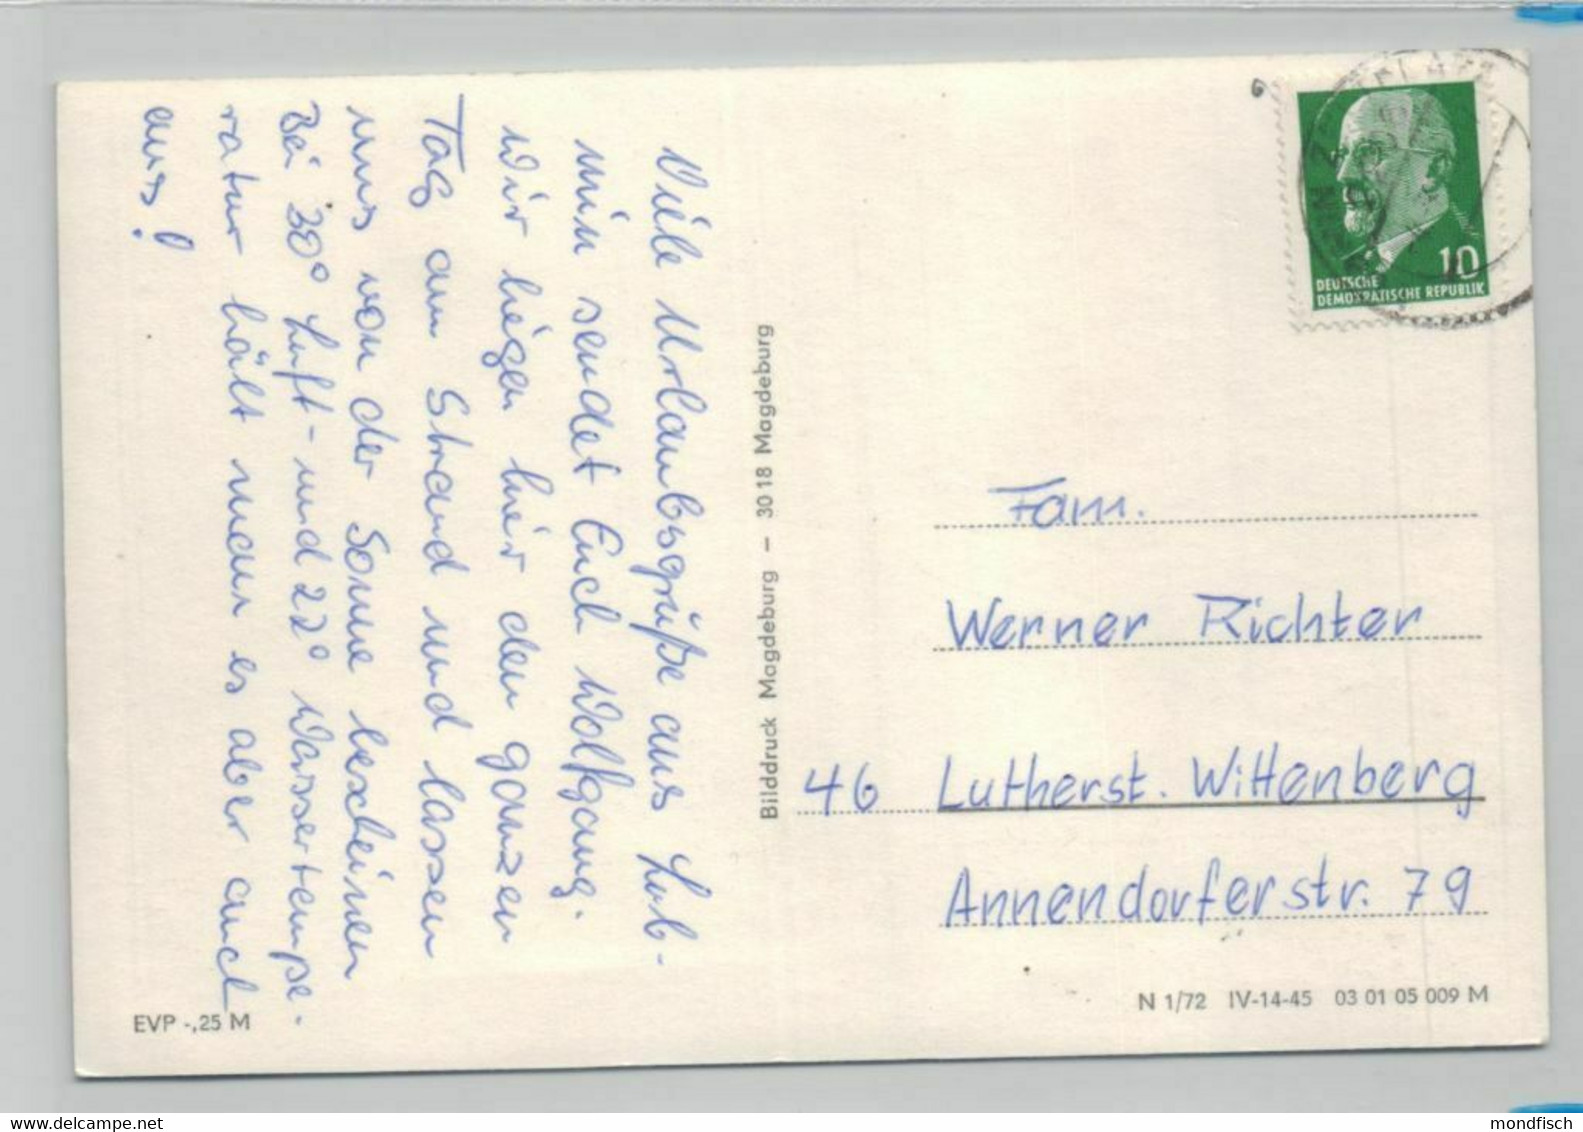 Viele Urlaubsgrüße aus Lub-
min sendet Euch Wolfgang.
Wir liegen hier den ganzen
Tag am Strand und lassen
uns von der Sonne bescheinen
Bei 30° Luft- und 22° Wassertempe-
ratur hält man es aber auch
aus!
EVP -,25 M
Bilddruck Magdeburg – 3018 Magdeburg
10
DEUTSCHE
DEMOKRATISCHE REPUBLIK
Fam.
Werner Richter
46 Lutherst. Wittenberg
Annendorferstr. 79
N 1/72 IV-14-45 03 01 05 009 M
mondfisch